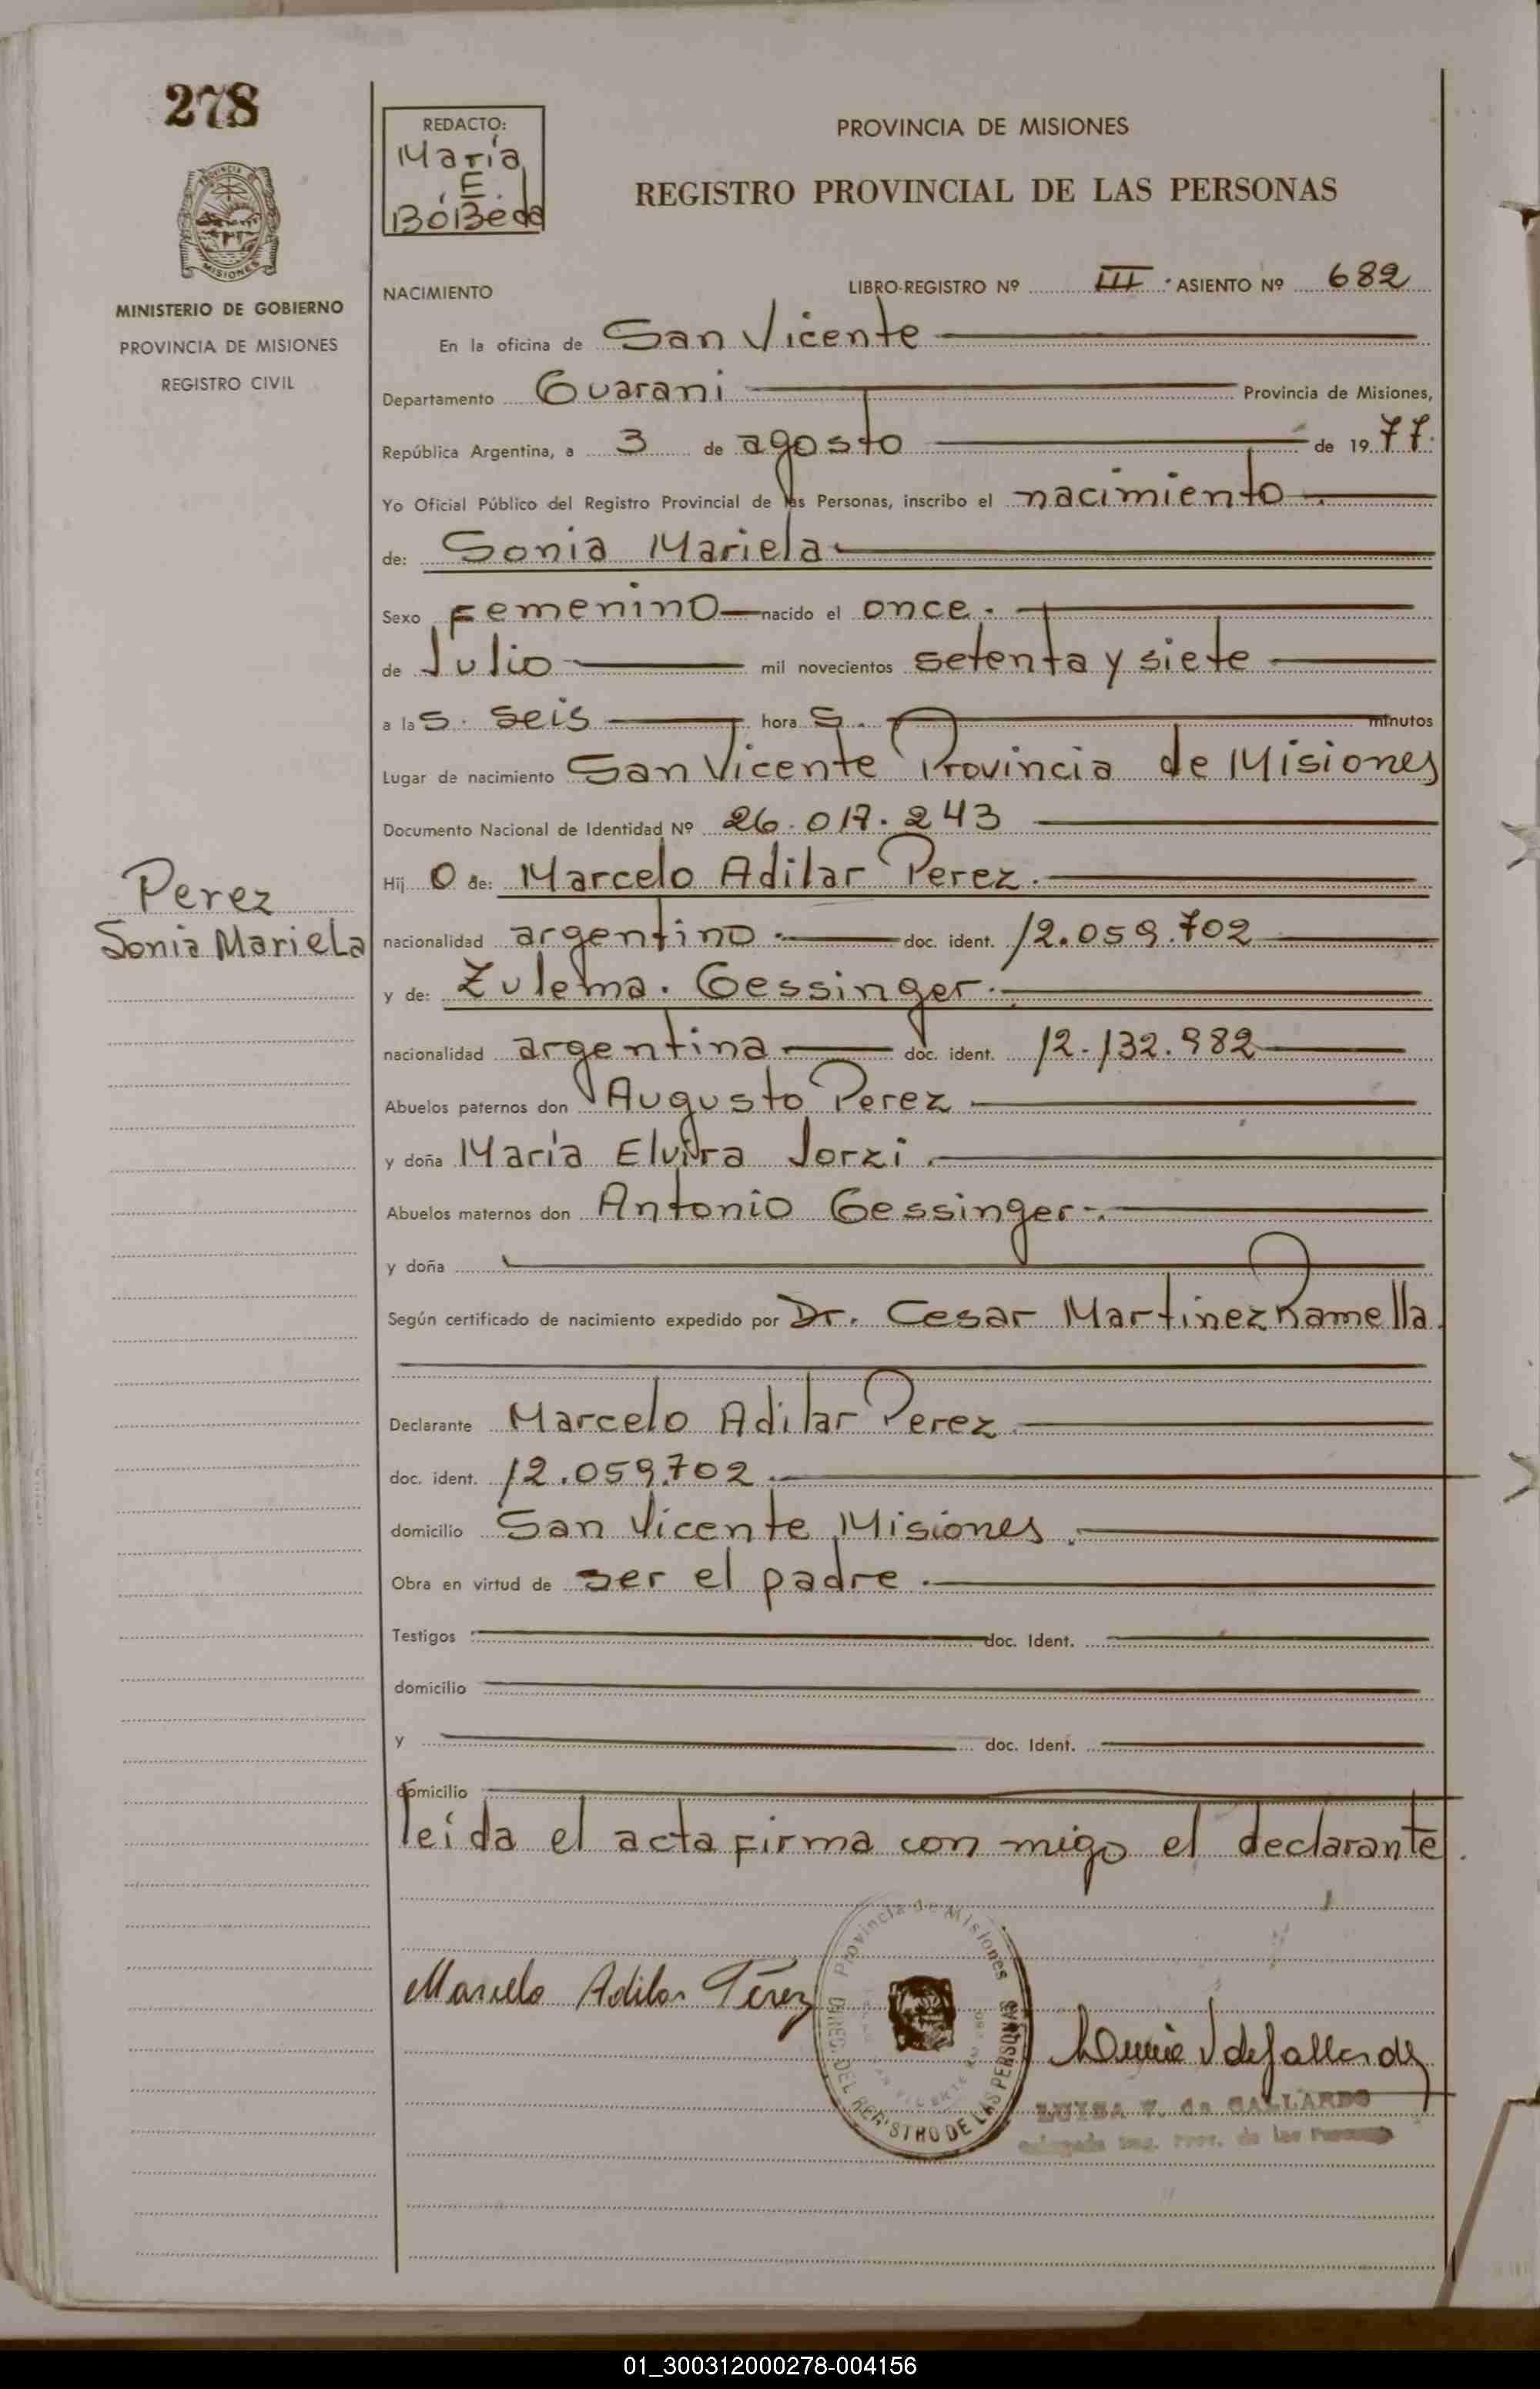 278
MISIONES
MINISTERIO DE GOBIERNO
PROVINCIA DE MISIONES
REGISTRO CIVIL
Perez
Sonia Mariela
REDACTO:
María
E.
BóBeda
PROVINCIA DE MISIONES
REGISTRO PROVINCIAL DE LAS PERSONAS
NACIMIENTO LIBRO-REGISTRO Nº III ASIENTO Nº 682
En la oficina de San Vicente
Departamento Guarani Provincia de Misiones,
República Argentina, a 3 de agosto de 19 77.
Yo Oficial Público del Registro Provincial de las Personas, inscribo el nacimiento
de: Sonia Mariela
Sexo Femenino nacido el once.
de Julio mil novecientos setenta y siete
a las. seis hora s. minutos
Lugar de nacimiento San Vicente Provincia de Misiones
Documento Nacional de Identidad Nº 26.017.243
Hij o de: Marcelo Adilar Perez.
nacionalidad argentino. doc. ident. 12.059.702
y de: Zulema. Gessinger.
nacionalidad argentina doc. ident. 12.132.982
Abuelos paternos don Augusto Perez
y doña María Elvira Jorzi.
Abuelos maternos don Antonio Gessinger-.
y doña
Según certificado de nacimiento expedido por Dr. Cesar Martinez Ramella.
Declarante Marcelo Adilar Perez.
doc. ident. 12.059.702.
domicilio San Vicente Misiones.
Obra en virtud de ser el padre.
Testigos doc. Ident.
domicilio
y doc. Ident.
domicilio
leída el acta firma con migo el declarante.
Provincia de Misiones
DIREC. DEL REGISTRO DE LAS PERSONAS
Marcelo Adilar Pérez
LUISA V. de GALLARDO
01_300312000278-004156